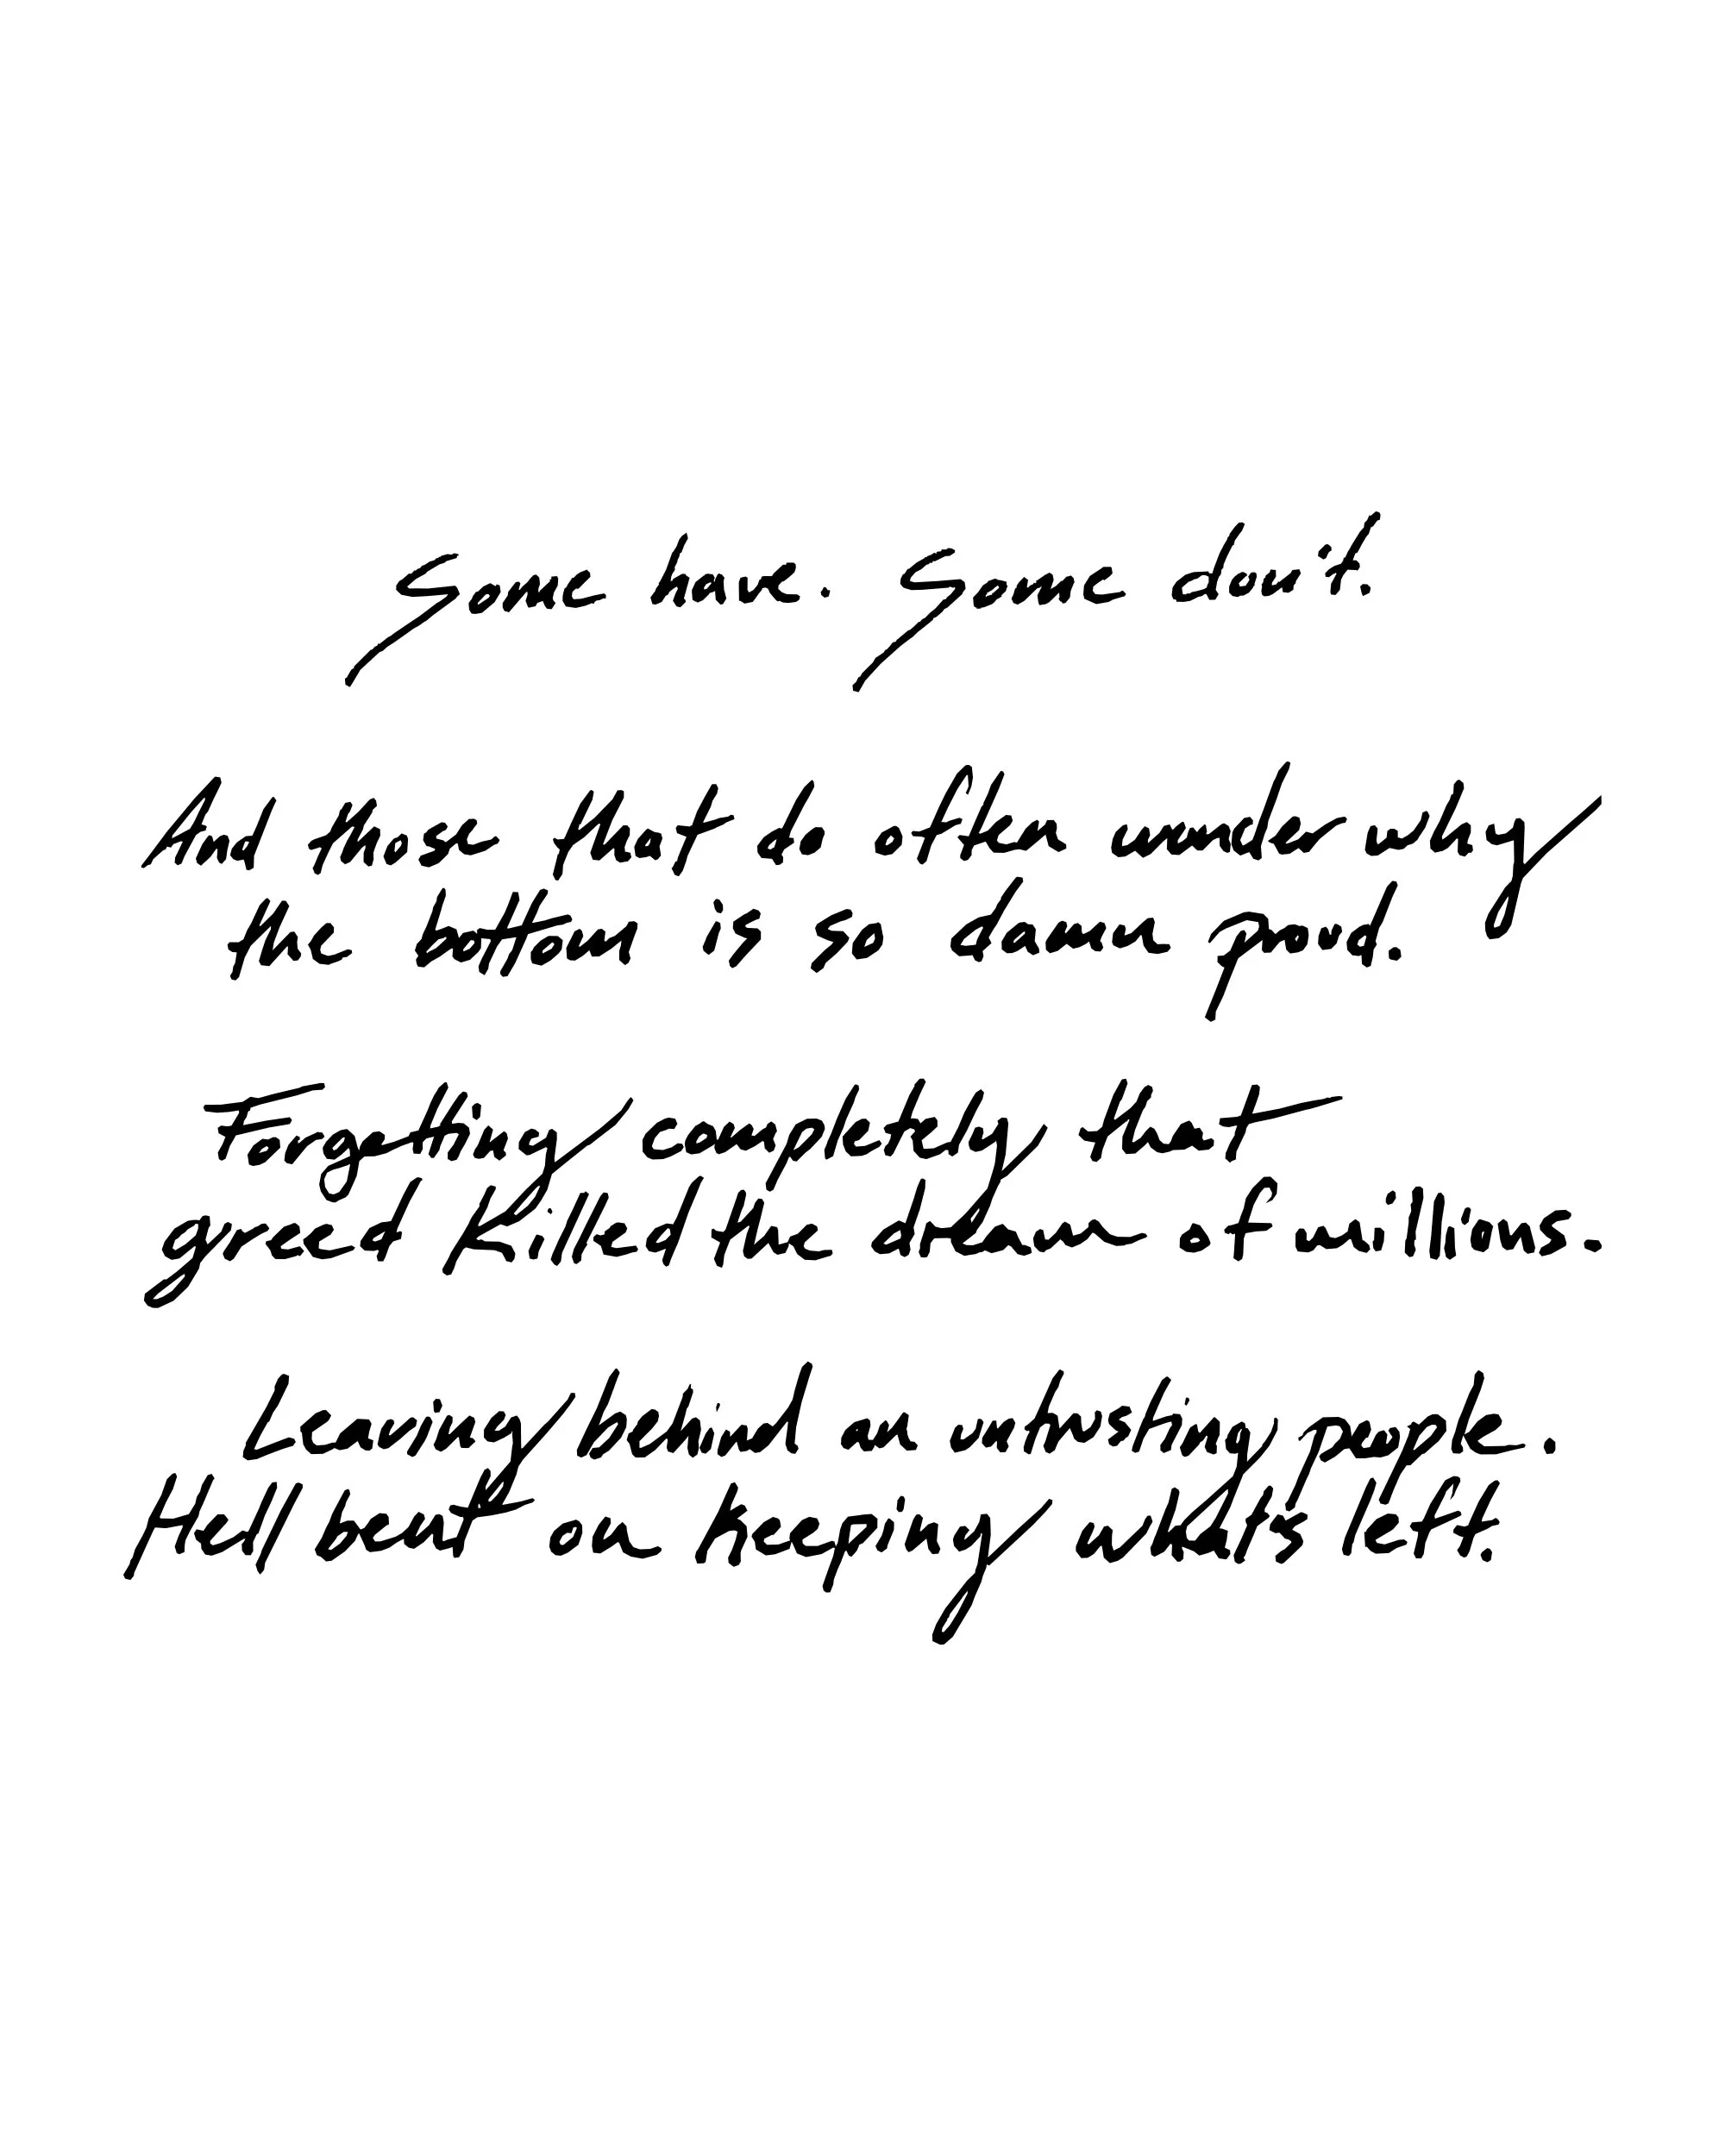 Some have. Some don't.
And those that do often wonder why
the bottom is so damn proud.
Forgetting completely that
greed killed the dream of millions.
Leaving behind an untrusting people.
Hell bent on keeping what's left.